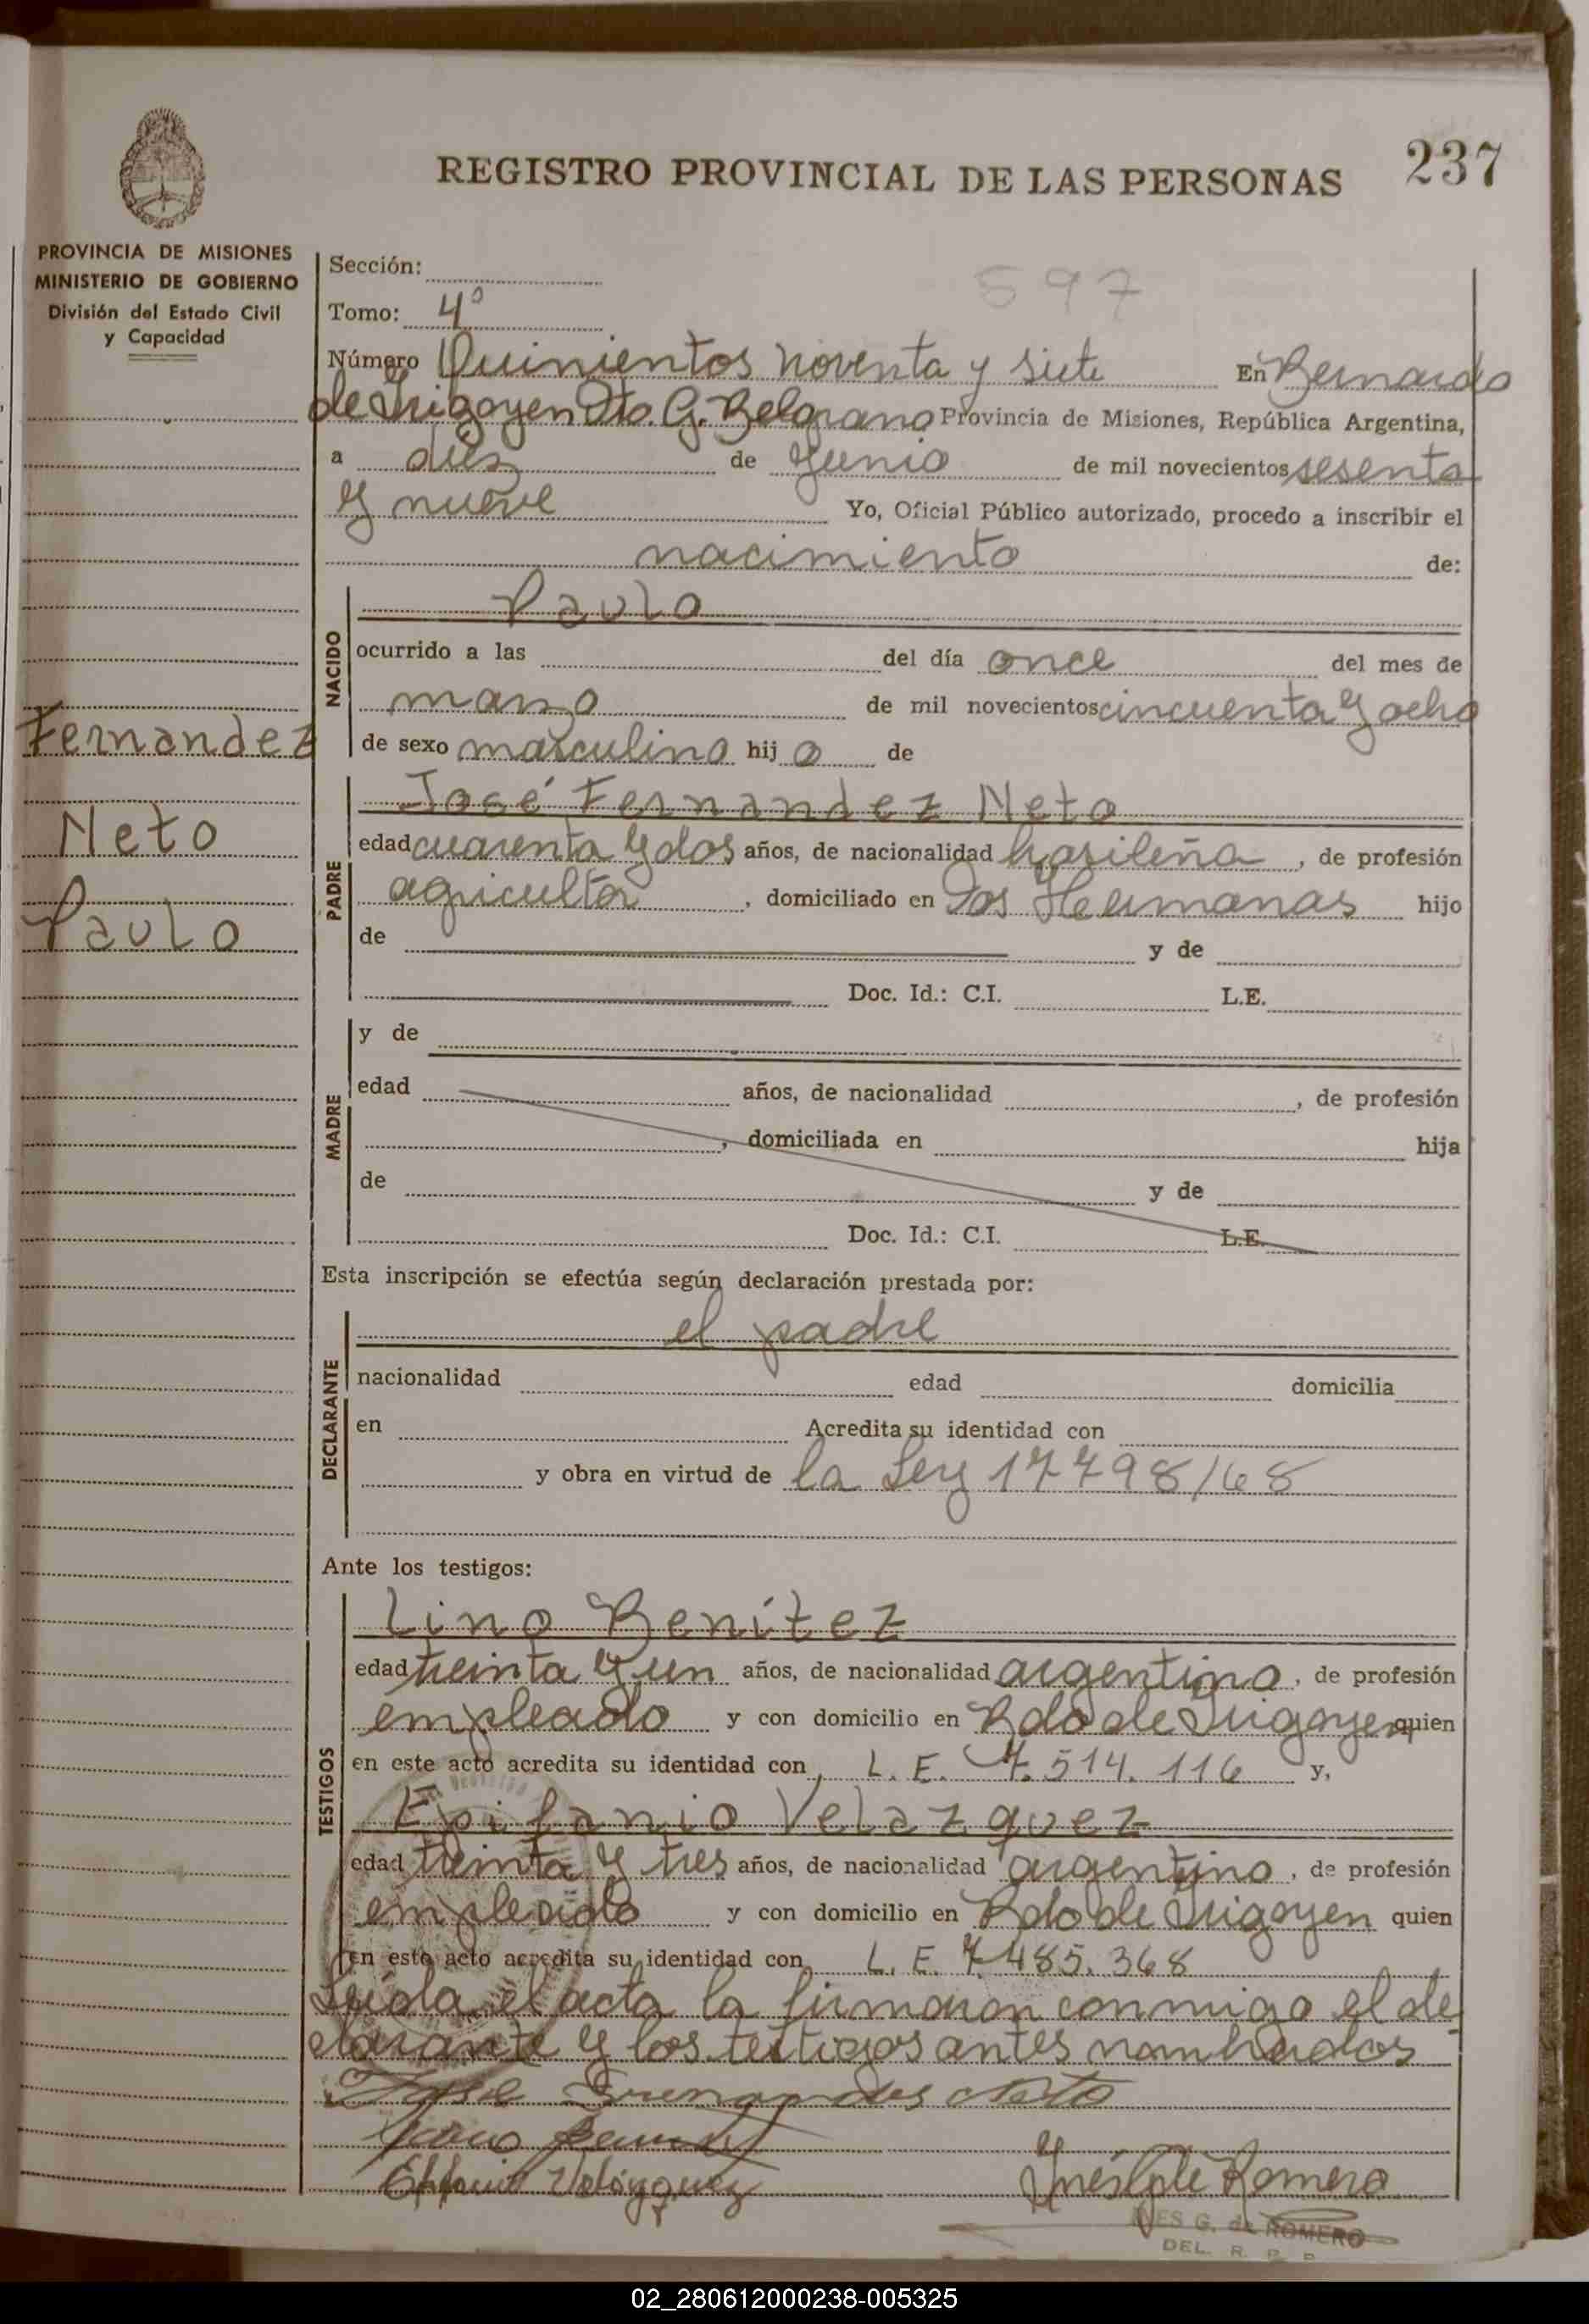 REGISTRO PROVINCIAL DE LAS PERSONAS 237
PROVINCIA DE MISIONES
MINISTERIO DE GOBIERNO
División del Estado Civil
y Capacidad
Fernandez
Neto
Paulo
Sección:
597
Tomo: 4º
Número Quinientos noventa y siete En Bernardo
de Irigoyen Dto. G. Belgrano Provincia de Misiones, República Argentina,
a diez de Junio de mil novecientos sesenta
y nueve Yo, Oficial Público autorizado, procedo a inscribir el
nacimiento de:
NACIDO
Paulo
ocurrido a las del día once del mes de
marzo de mil novecientos cincuenta y ocho
de sexo masculino hijo de
PADRE
José Fernandez Neto
edad cuarenta y dos años, de nacionalidad brasileña, de profesión
agricultor, domiciliado en Dos Hermanas hijo
de y de
Doc. Id.: C.I. L.E.
MADRE
y de
edad años, de nacionalidad , de profesión
, domiciliada en hija
de y de
Doc. Id.: C.I. L.E.
Esta inscripción se efectúa según declaración prestada por:
DECLARANTE
el padre
nacionalidad edad domicilia
en Acredita su identidad con
y obra en virtud de la Ley 17798/68
Ante los testigos:
TESTIGOS
Lino Benítez
edad treinta y un años, de nacionalidad argentino, de profesión
empleado y con domicilio en Bdo de Irigoyen quien
en este acto acredita su identidad con, L. E. 7.514.116 y,
Epifanio Velazquez
edad treinta y tres años, de nacionalidad argentino, de profesión
empleado y con domicilio en Bdo de Irigoyen quien
en este acto acredita su identidad con, L. E. 7.485.368
Leída el acta la firmaron conmigo el de
clarante y los testigos antes nombrados
Neto
Velázquez
Romero
INES G. de ROMERO
DEL. R. P. P.
02_280612000238-005325